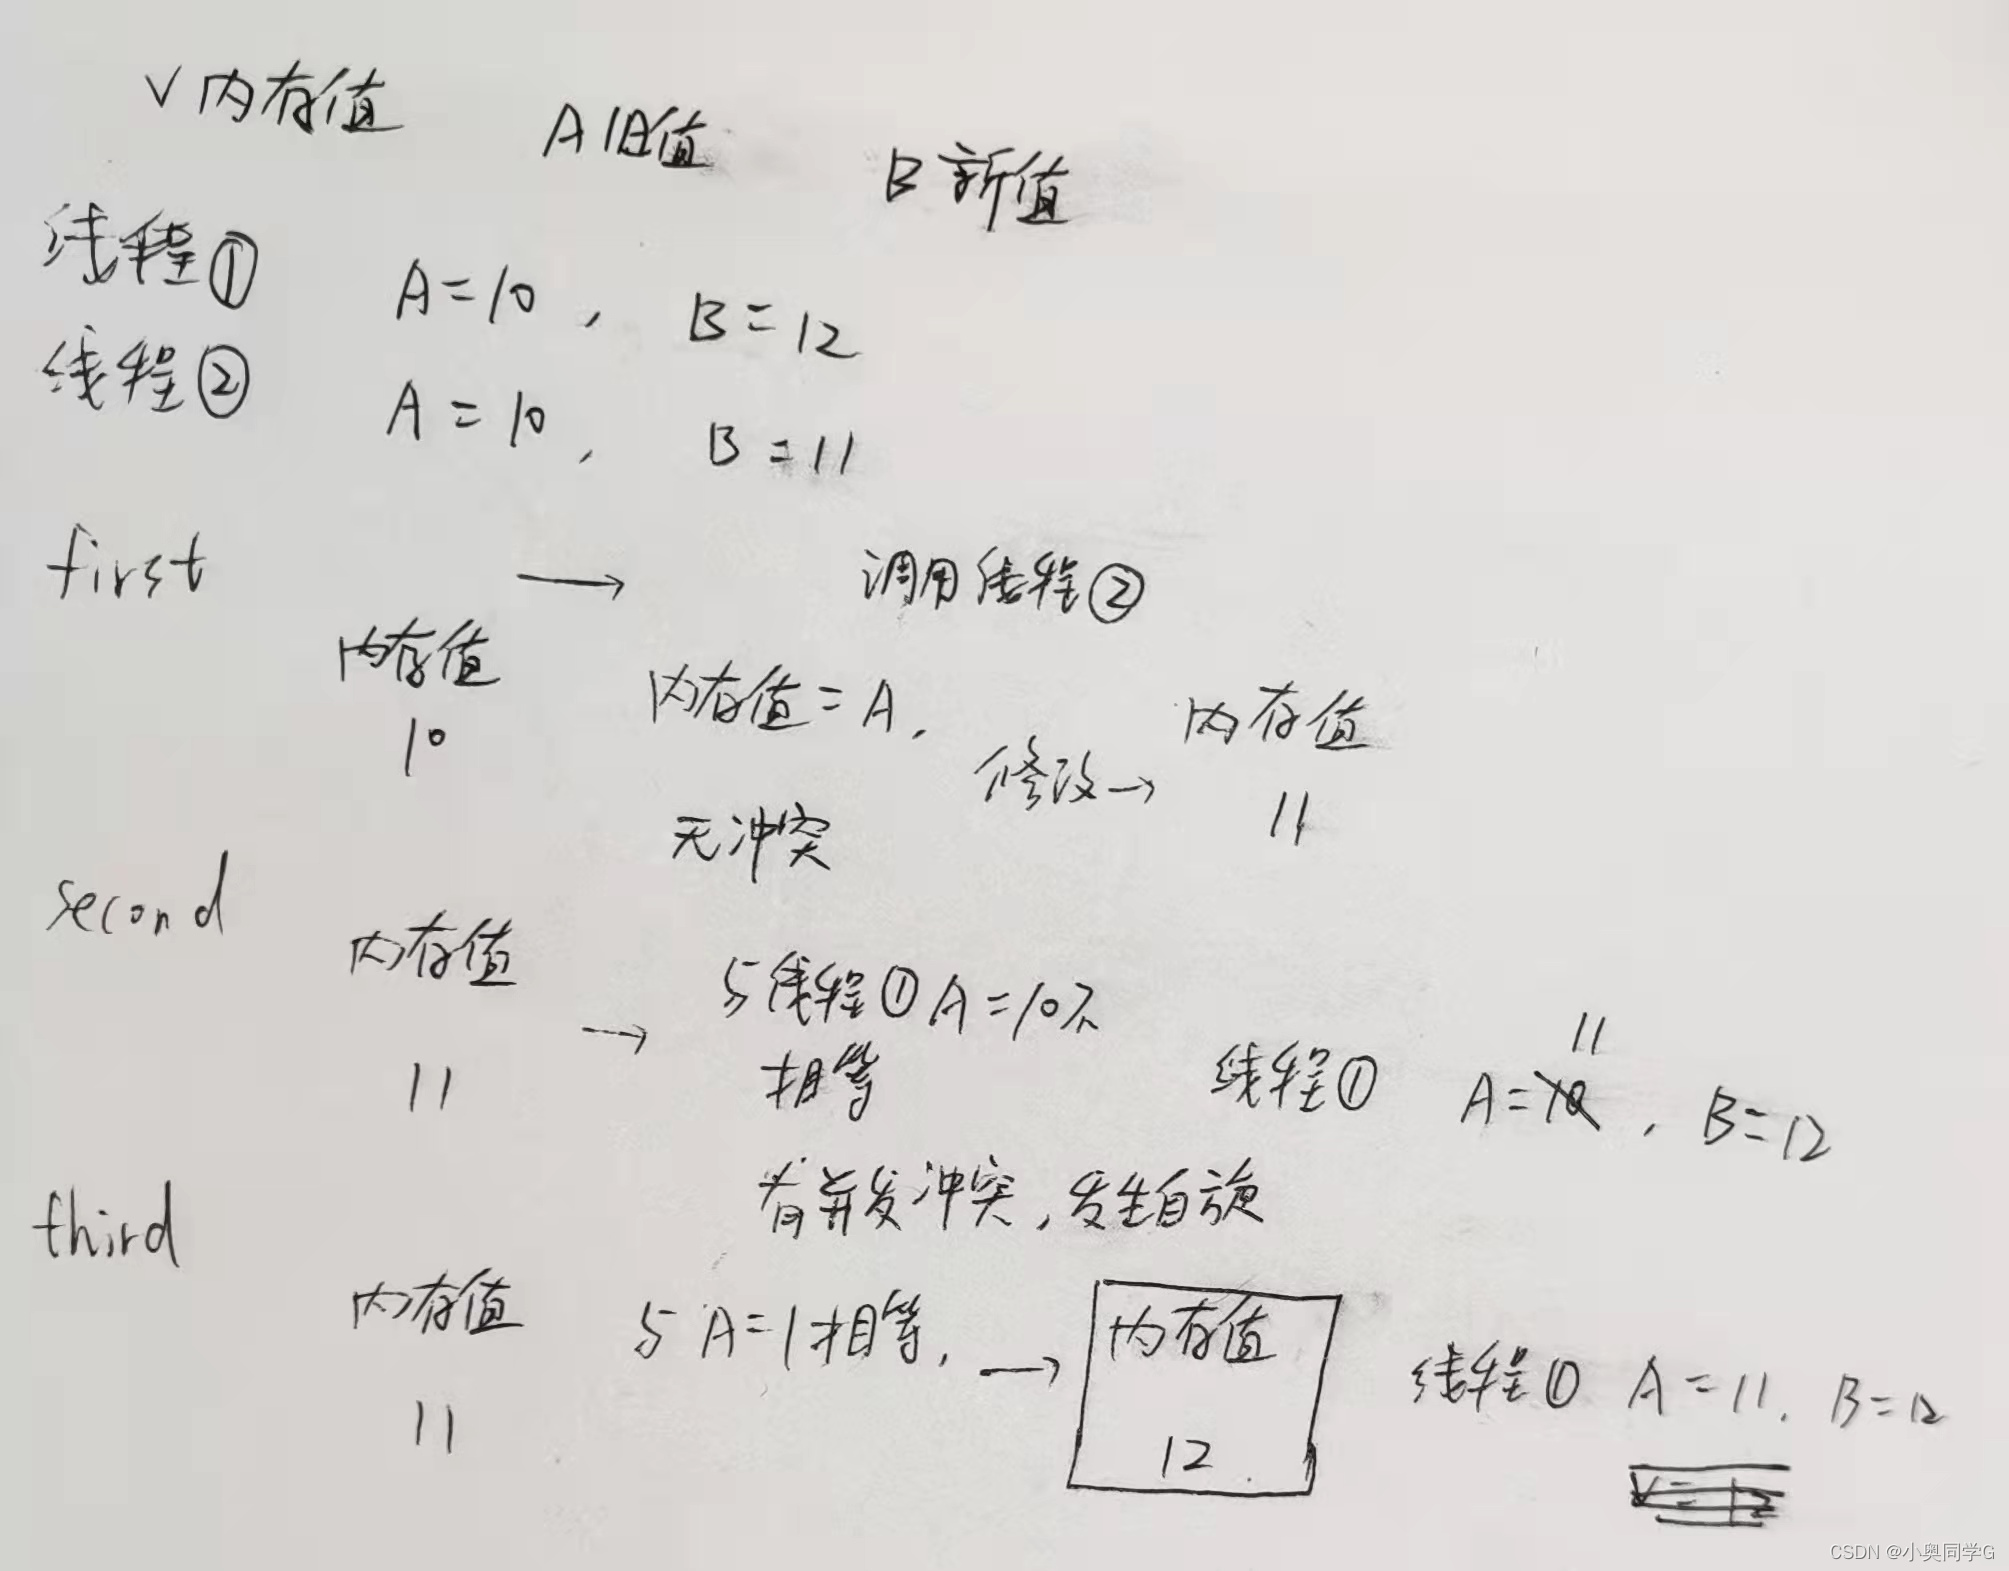 V 内存值 A 旧值 B 新值
线程① A=10 , B=12
线程② A=10 , B=11
first → 调用线程②
内存值 内存值=A, 修改→ 内存值
10 11
无冲突
second
内存值 → 与线程① A=10不
11 相等 线程① A=10 11 , B=12
有并发冲突,发生自旋
third
内存值 与 A=1相等, → 内存值 线程① A=11, B=12
11 12
V=12
CSDN @小奥同学G